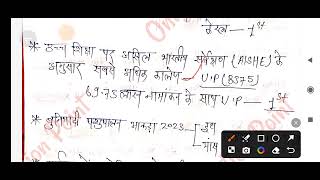 केरल — 1st
* उच्च शिक्षा पर अखिल भारतीय सर्वेक्षण (AISHE) के
अनुसार सबसे अधिक कालेज U.P (8375)
69.73 लाख नामांकन के साथ U.P — 1st
* बुनियादी पशुपालन आंकड़ा 2023 — दुध
मांस